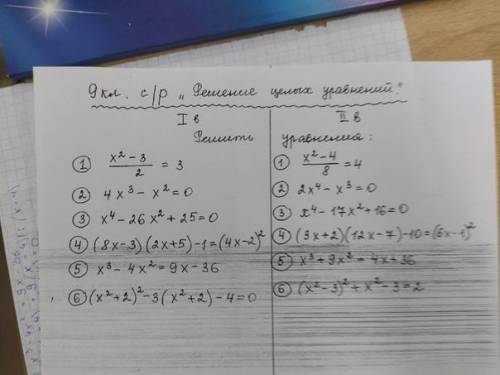 9 кл. с/р „Решение целых уравнений."
I в
Решить
① (x² - 3)/2 = 3
② 4x³ - x² = 0
③ x⁴ - 26x² + 25 = 0
④ (8x-3)(2x+5)-1=(4x-2)²
⑤ x³ - 4x² = 9x - 36
⑥ (x²+2)² - 3(x²+2) - 4 = 0
II в
уравнения:
① (x² - 4)/8 = 4
② 2x⁴ - x³ = 0
③ x⁴ - 17x² + 16 = 0
④ (3x+2)(12x-7)-10=(6x-1)²
⑤ x³ + 9x² = 4x + 36
⑥ (x²-3)² + x² - 3 = 2